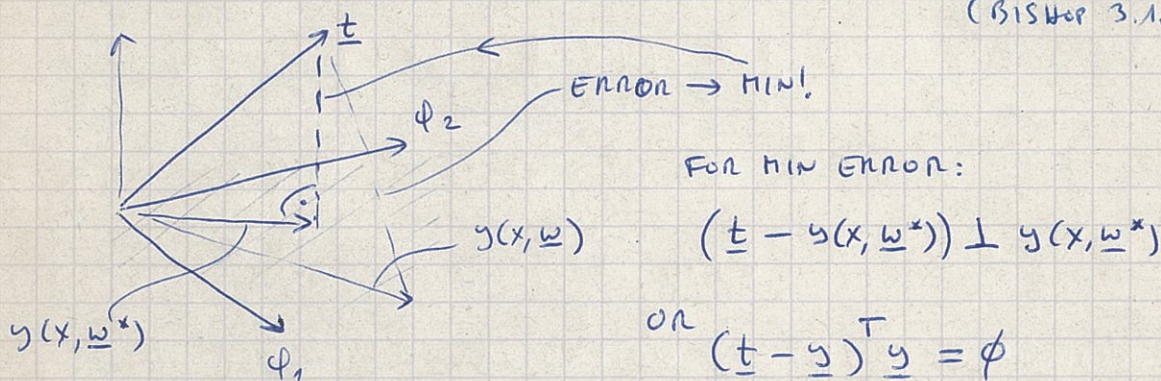 (BISHOP 3.1.
t
ERROR → MIN!
φ2
FOR MIN ERROR:
y(x, w)
(t − y(x, w*)) ⊥ y(x, w*)
y(x, w*)
φ1
OR
(t − y)ᵀ y = ϕ